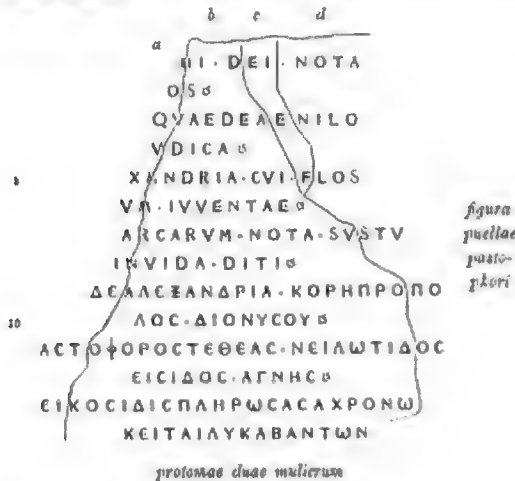 b c d
a
ΠΙ · DEI · NOTA
OS
QVAEDEAENILO
VDICA
5 XANDRIA · CVI · FLOS
VA · IVVENTAE
ARCARVM · NOTA · SVSTV
INVIDA · DITI
ΔΕΑΛΕΞΑΝΔΡΙΑ · ΚΟΡΗΠΡΟΠΟ
10 ΛΟC · ΔΙΟΝΥCΟΥ
ΑCΤΟΦΟΡΟCΤΕΘΕΑC · ΝΕΙΛΩΤΙΔΟC
ΕΙCΙΔΟC · ΑΓΝΗC
ΕΙΚΟCΙΔΙCΠΛΗΡΩCΑCΑΧΡΟΝΩ
ΚΕΙΤΑΙΛΥΚΑΒΑΝΤΩΝ
figura
puellae
pasto-
phori
protomae duae mulierum